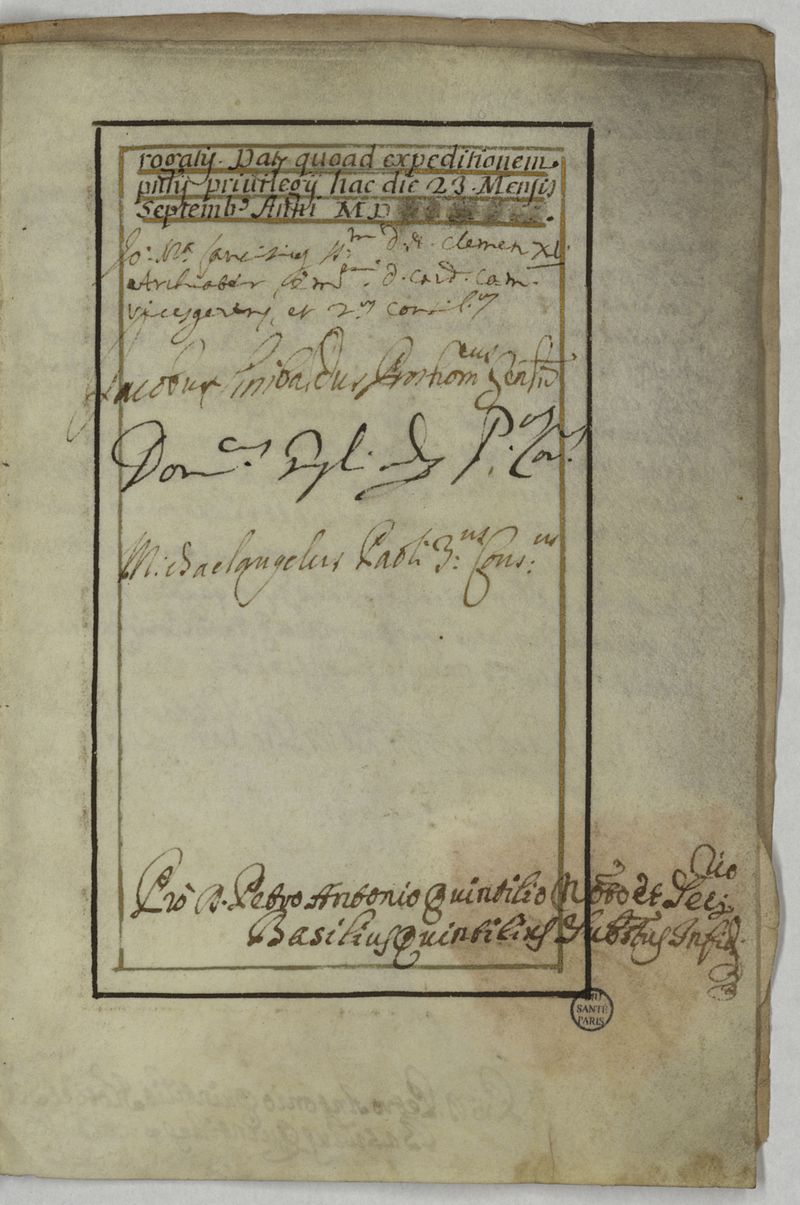 rogatij. Dat quoad expeditionem.
pntis priuilegij hac die 23. Mensis
Septembs Anni MD
Jo: Ma. Lancisius D. Clemen XI.
Archiater Emi. D. Card. Cam.
Vicesgerens, et 2us Consil.us
Jacobus Sinibaldus Prothomeus Gen
Domcus P.us Cons.
Michaelangelus Paoli 3.us Cons.us
Pro D. Petro Antonio Quintilio Noto et Secrio
Basilius Quintilius Substus
SANTÉ
PARIS